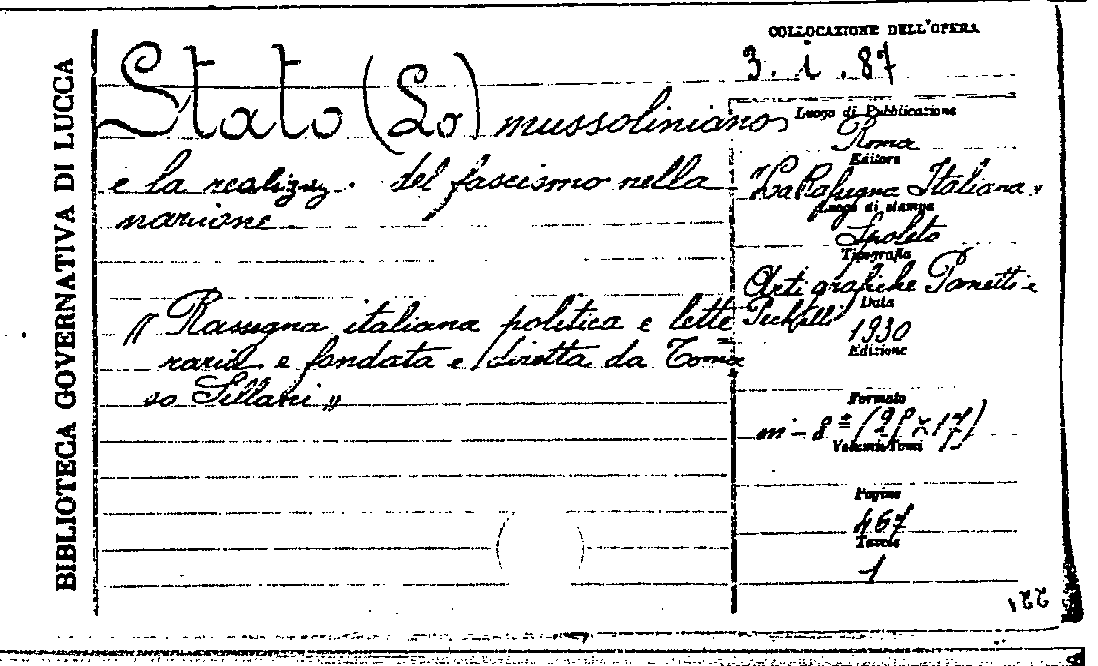 BIBLIOTECA GOVERNATIVA DI LUCCA
COLLOCAZIONE DELL'OPERA
3. i. 87
Stato (Lo) mussoliniano
e la realizz. del fascismo nella
nazione
"Rassegna italiana politica e lette=
raria e fondata e diretta da Toma
so Sillani"
Luogo di Pubblicazione
Roma
Editore
"La Rassegna Italiana"
Luogo di stampa
Spoleto
Tipografia
Arti grafiche Panetti e
Petrelli
Data
1930
Edizione
Formato
in-8° (25x17)
Volumi-Tomi
Pagine
467
Tavole
1
221